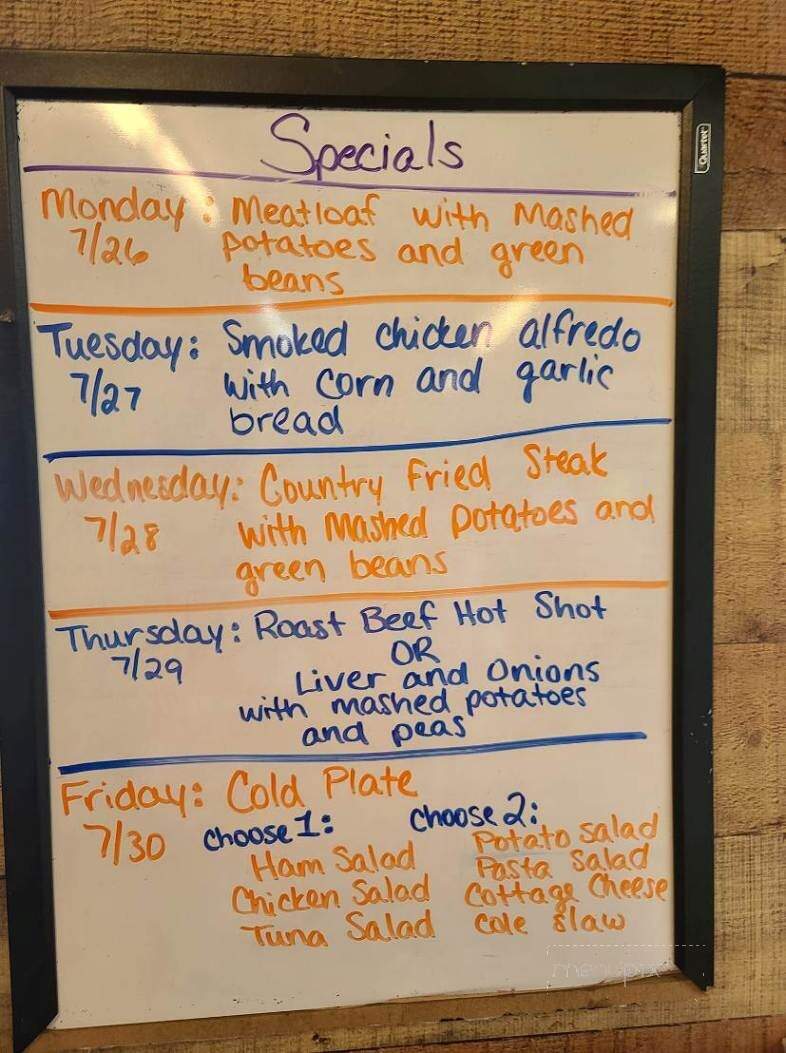 Specials
Quartet
Monday: Meatloaf with Mashed
7/26 potatoes and green
beans
Tuesday: Smoked chicken alfredo
7/27 with corn and garlic
bread
Wednesday: Country Fried Steak
7/28 with Mashed potatoes and
green beans
Thursday: Roast Beef Hot Shot
7/29 OR
Liver and Onions
with mashed potatoes
and peas
Friday: Cold Plate
7/30 choose 1: choose 2:
Ham Salad Potato salad
Chicken Salad Pasta Salad
Tuna Salad Cottage Cheese
Cole slaw
menupix